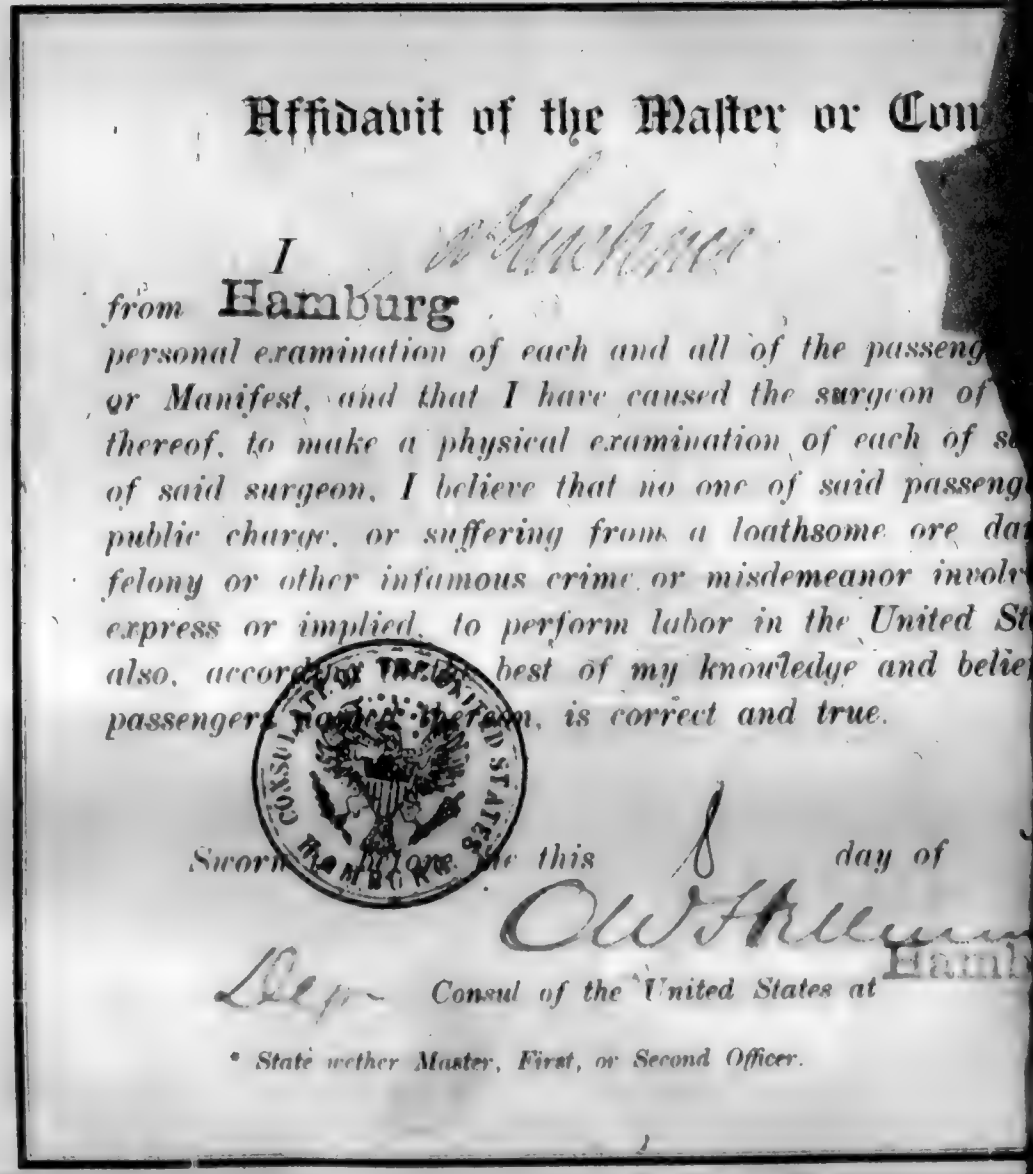 Affidavit of the Master or Com
I
from Hamburg
personal examination of each and all of the passeng
or Manifest, and that I have caused the surgeon of
thereof, to make a physical examination of each of s
of said surgeon, I believe that no one of said passeng
public charge, or suffering from a loathsome ore da
felony or other infamous crime or misdemeanor involv
express or implied, to perform labor in the United St
also, according best of my knowledge and belie
passengers named thereon, is correct and true.
CONSULATE OF THE UNITED STATES
HAMBURG
Sworn to before me this 8 day of
Hamb
Dep Consul of the United States at
* State wether Master, First, or Second Officer.